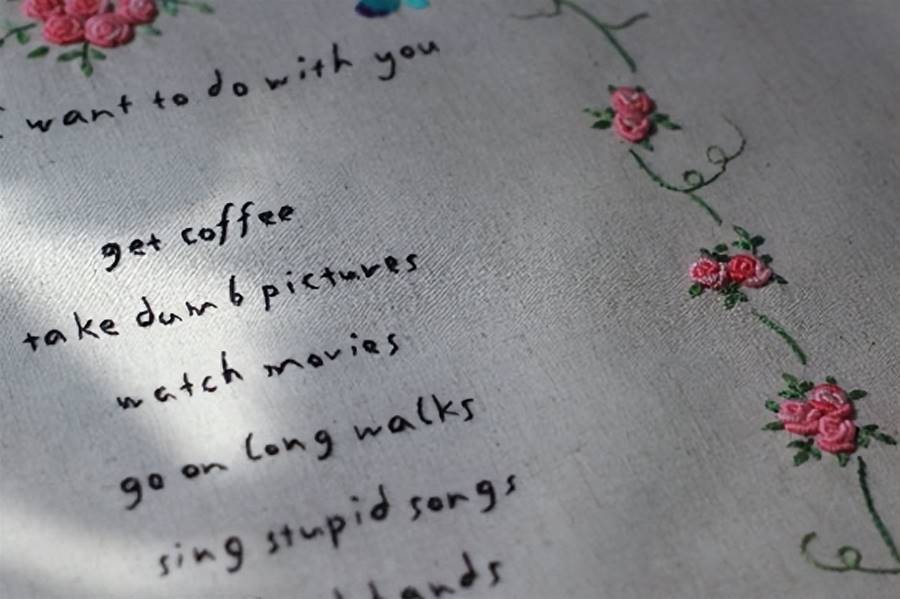 want to do with you
get coffee
take dumb pictures
watch movies
go on long walks
sing stupid songs